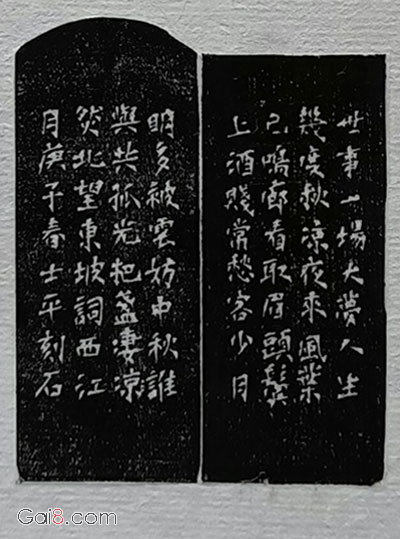 世事一場大夢人生
幾度秋涼夜來風葉
已鳴廊看取眉頭鬢
上酒賤常愁客少月
明多被雲妨中秋誰
與共孤光把盞淒涼
然北望東坡詞西江
月庚子春士平刻石
Gai8.com